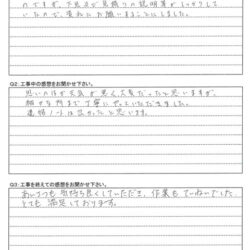 のですが、下見及び見積りの説明等がしっかりして
いたので、貴社にお願いすることにしました。
Q2. 工事中の感想をお聞かせ下さい。
思いのほか天気が悪く大変だったと思いますが、
細かな所まで丁寧にやっていただきました。
連絡ノートは良かったと思います。
Q3. 工事を終えての感想をお聞かせ下さい。
あいさつも気持ち良くしていただき、作業もていねいでした。
とても満足しております。